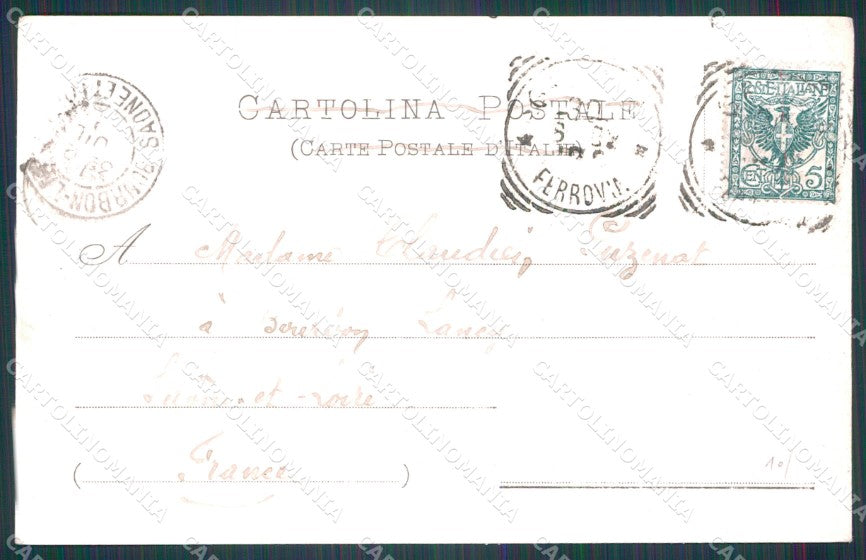 CARTOLINA POSTALE
(CARTE POSTALE D'ITALIE)
FERROVIA
POSTE ITALIANE
CENT. 5
BOURBON-LANCY
SAONE ET
A Madame Puzenat
à Bourbon Lancy
Saône-et-Loire
(France)
CARTOLINOMANIA